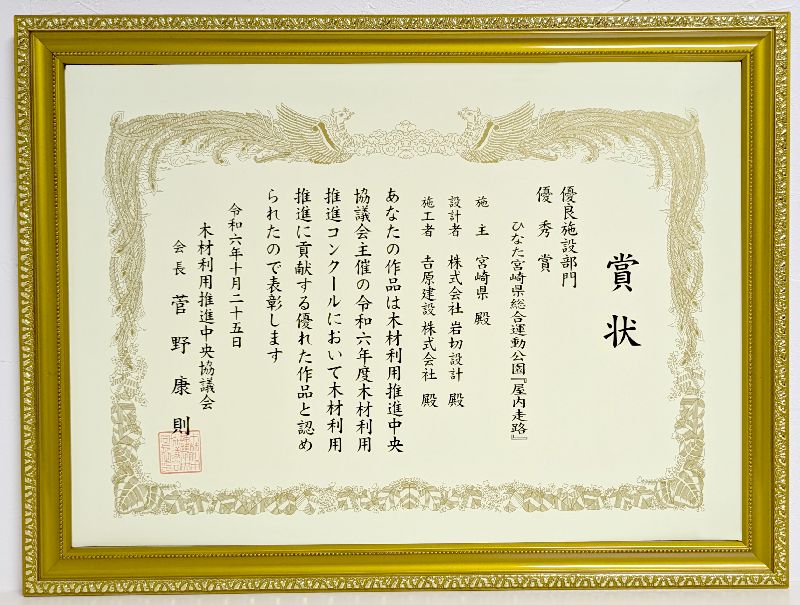 賞状
優良施設部門
優秀賞
ひなた宮崎県総合運動公園『屋内走路』
施主 宮崎県 殿
設計者 株式会社 岩切設計 殿
施工者 吉原建設株式会社 殿
あなたの作品は木材利用推進中央
協議会主催の令和六年度木材利用
推進コンクールにおいて木材利用
推進に貢献する優れた作品と認め
られたので表彰します
令和六年十月二十五日
木材利用推進中央協議会
会長 菅野康則